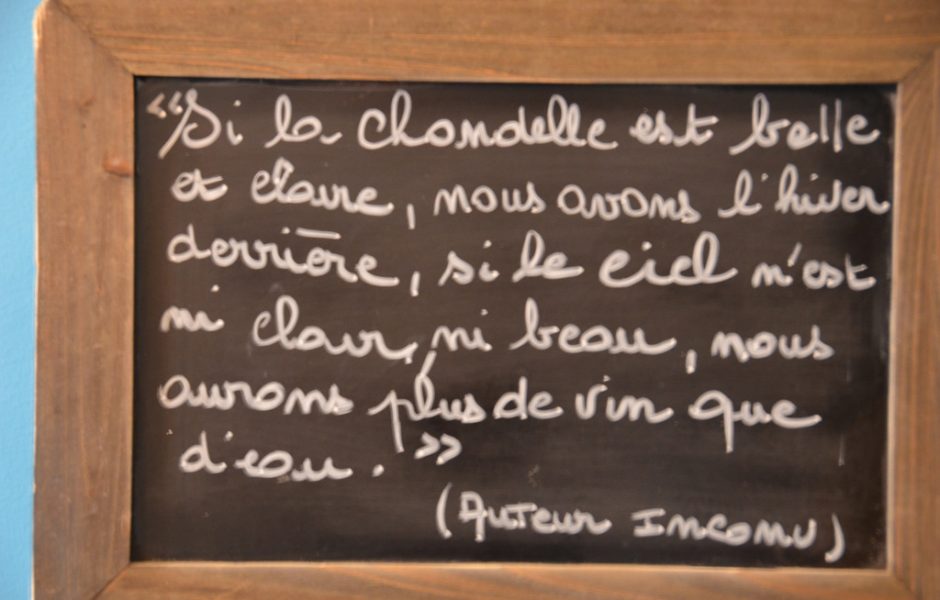 “Si la chandelle est belle
et claire, nous avons l'hiver
derrière, si le ciel n'est
ni clair, ni beau, nous
aurons plus de vin que
d'eau. ”
(Auteur Inconnu)